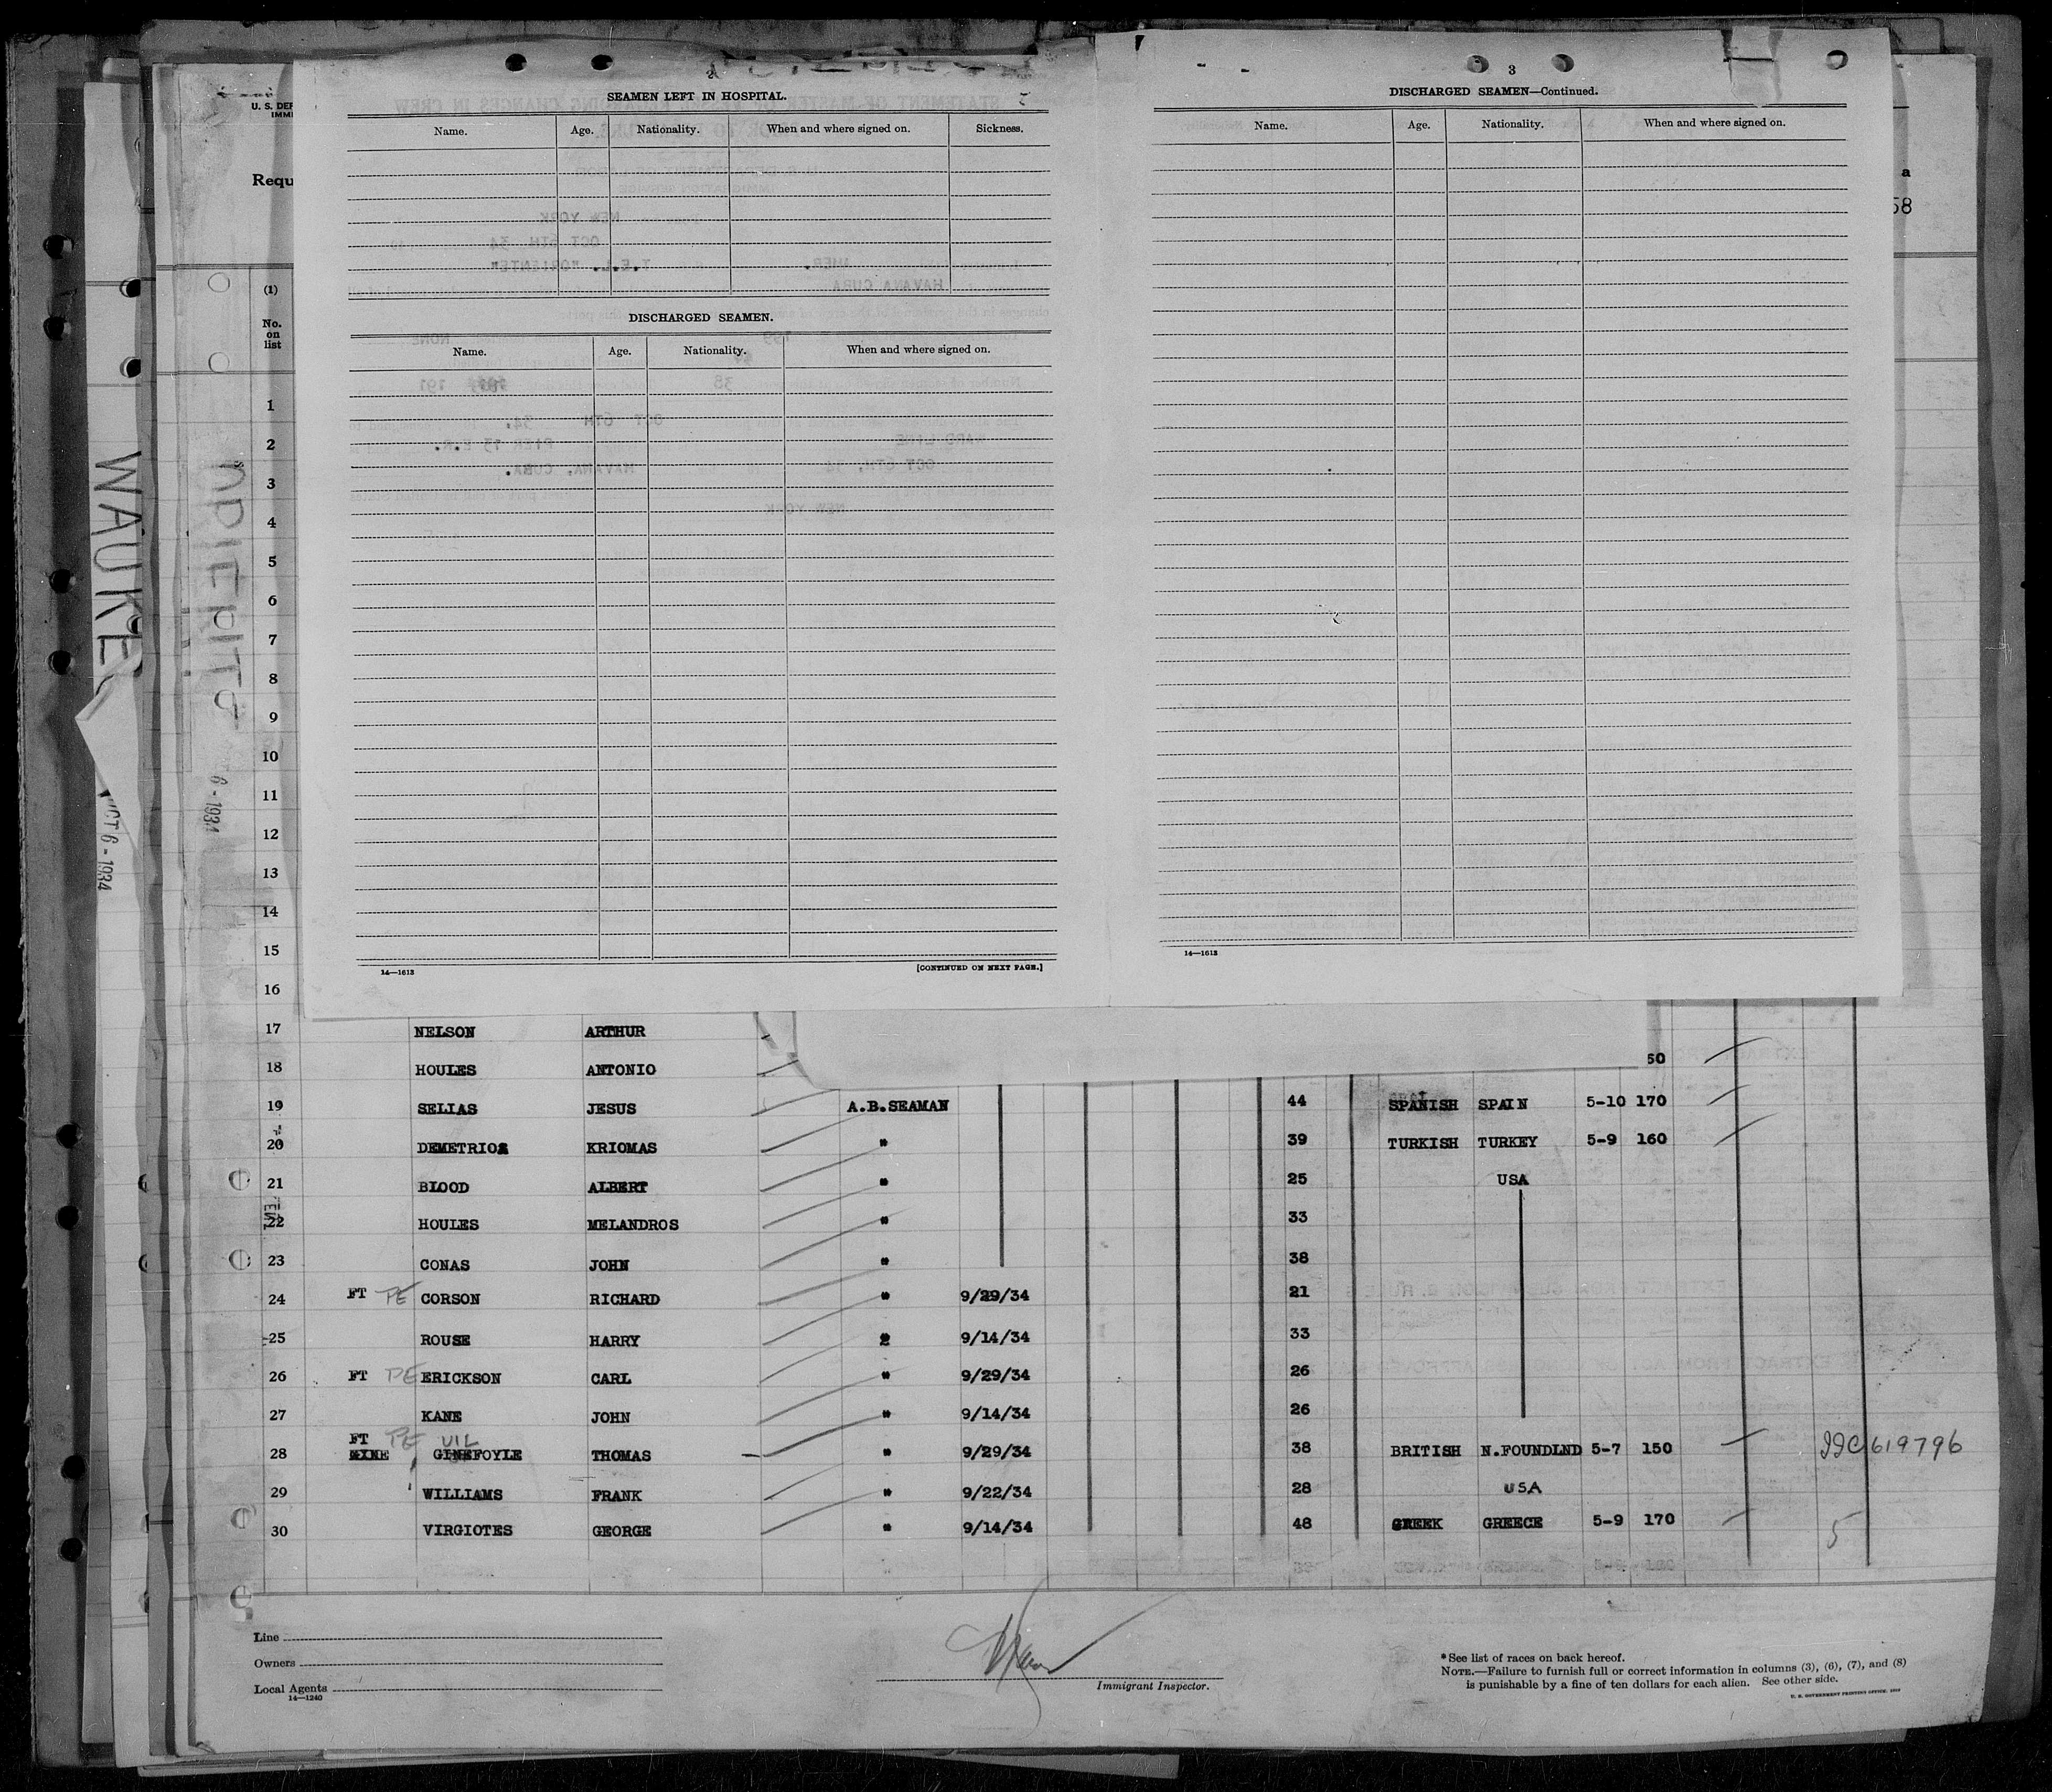 2
SEAMEN LEFT IN HOSPITAL.
Name. Age. Nationality. When and where signed on. Sickness.
DISCHARGED SEAMEN.
Name. Age. Nationality. When and where signed on.
14—1613 [CONTINUED ON NEXT PAGE.]
3
DISCHARGED SEAMEN—Continued.
Name. Age. Nationality. When and where signed on.
14—1613
U. S. DEP
IMMI
Requ
a
58
WAUKE
OCT 6 - 1934
ORIENTE
6 - 1934
(1)
No.
on
list
1
2
3
4
5
6
7
8
9
10
11
12
13
14
15
16
17 NELSON ARTHUR
18 HOULES ANTONIO 50
19 SELIAS JESUS A.B.SEAMAN 44 SPANISH SPAIN 5-10 170
20 DEMETRIOS KRIOMAS " 39 TURKISH TURKEY 5-9 160
21 BLOOD ALBERT " 25 USA
22 HOULES MELANDROS " 33
23 CONAS JOHN " 38
24 FT PE CORSON RICHARD " 9/29/34 21
25 ROUSE HARRY " 9/14/34 33
26 FT PE ERICKSON CARL " 9/29/34 26
27 KANE JOHN " 9/14/34 26
FT PE UIL
28 GINEFOYLE THOMAS " 9/29/34 38 BRITISH N.FOUNDLND 5-7 150 619796
29 WILLIAMS FRANK " 9/22/34 28 USA
30 VIRGIOTES GEORGE " 9/14/34 48 GREEK GREECE 5-9 170 5
Line
Owners
Local Agents
14—1240
Immigrant Inspector.
*See list of races on back hereof.
NOTE.—Failure to furnish full or correct information in columns (3), (6), (7), and (8)
is punishable by a fine of ten dollars for each alien. See other side.